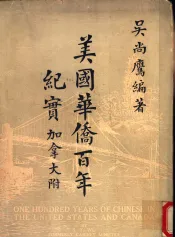 吳尚鷹編著
美國華僑百年
紀實 加拿大附
ONE HUNDRED YEARS OF CHINESE IN
THE UNITED STATES AND CANADA